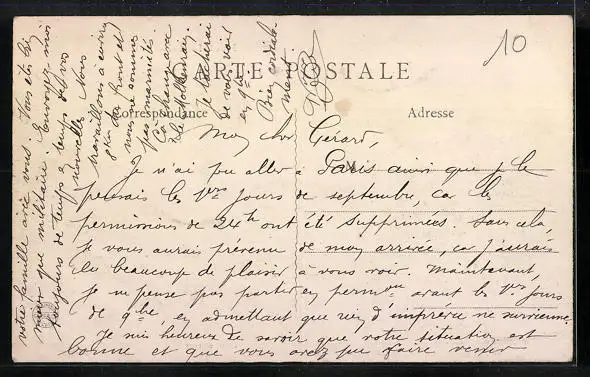 10
CARTE POSTALE
Correspondance
Adresse
Mon cher Gérard,
Je n'ai pu aller à Paris ainsi que je le
pensais les 1ers jours de septembre, car les
permissions de 24h ont été supprimées. Sans cela,
je vous aurais prévenu de mon arrivée, car j'aurais
eu beaucoup de plaisir à vous voir. Maintenant,
je ne pense pas partir en permon avant les 1ers jours
de 9bre, en admettant que rien d'imprévu ne survienne.
Je suis heureux de savoir que votre situation est
bonne et que vous avez pu faire venir
votre famille avec vous. Vous êtes
mieux que militaire. Envoyez moi
toujours de temps à temps de vos
nouvelles. Nous
travaillons à
du front et
nous ne sommes
pas
Ça
Je tâcherai
de vous voir
en 9bre
Bien cordiale-
ment